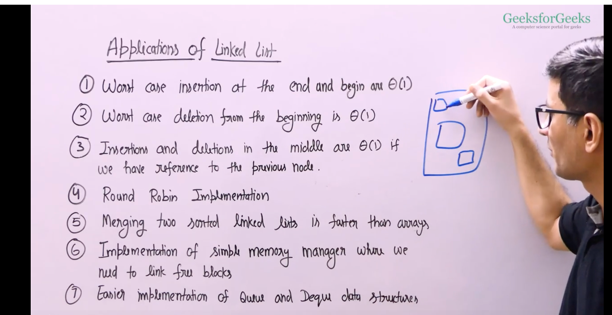 GeeksforGeeks
A computer science portal for geeks
Applications of Linked List
① Worst case insertion at the end and begin are θ(1)
② Worst case deletion from the beginning is θ(1)
③ Insertions and deletions in the middle are θ(1) if
we have reference to the previous node.
④ Round Robin Implementation
⑤ Merging two sorted linked lists is faster than arrays
⑥ Implementation of simple memory manager where we
need to link free blocks
⑦ Easier implementation of Queue and Deque data structures